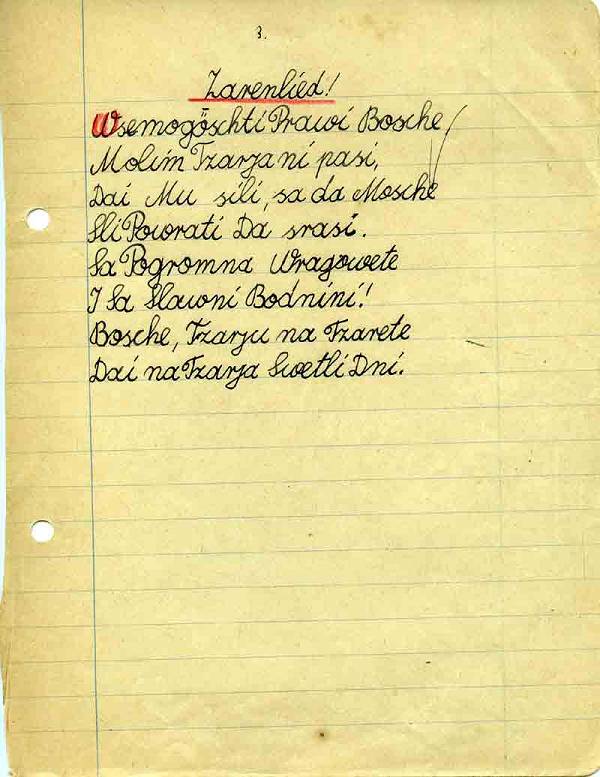 3.
Zarenlied!
Wsemogöschti Prawi Bosche,
Molim Tzarja ni pasi,
Dai Mu sili, sa da Mosche
Sli Powrati Da srasi.
Sa Pogromna Wragowete
I Sa Slawni Bodnini!
Bosche, Tzarju na Tzarete
Dai na Tzarja Swetli Dni.